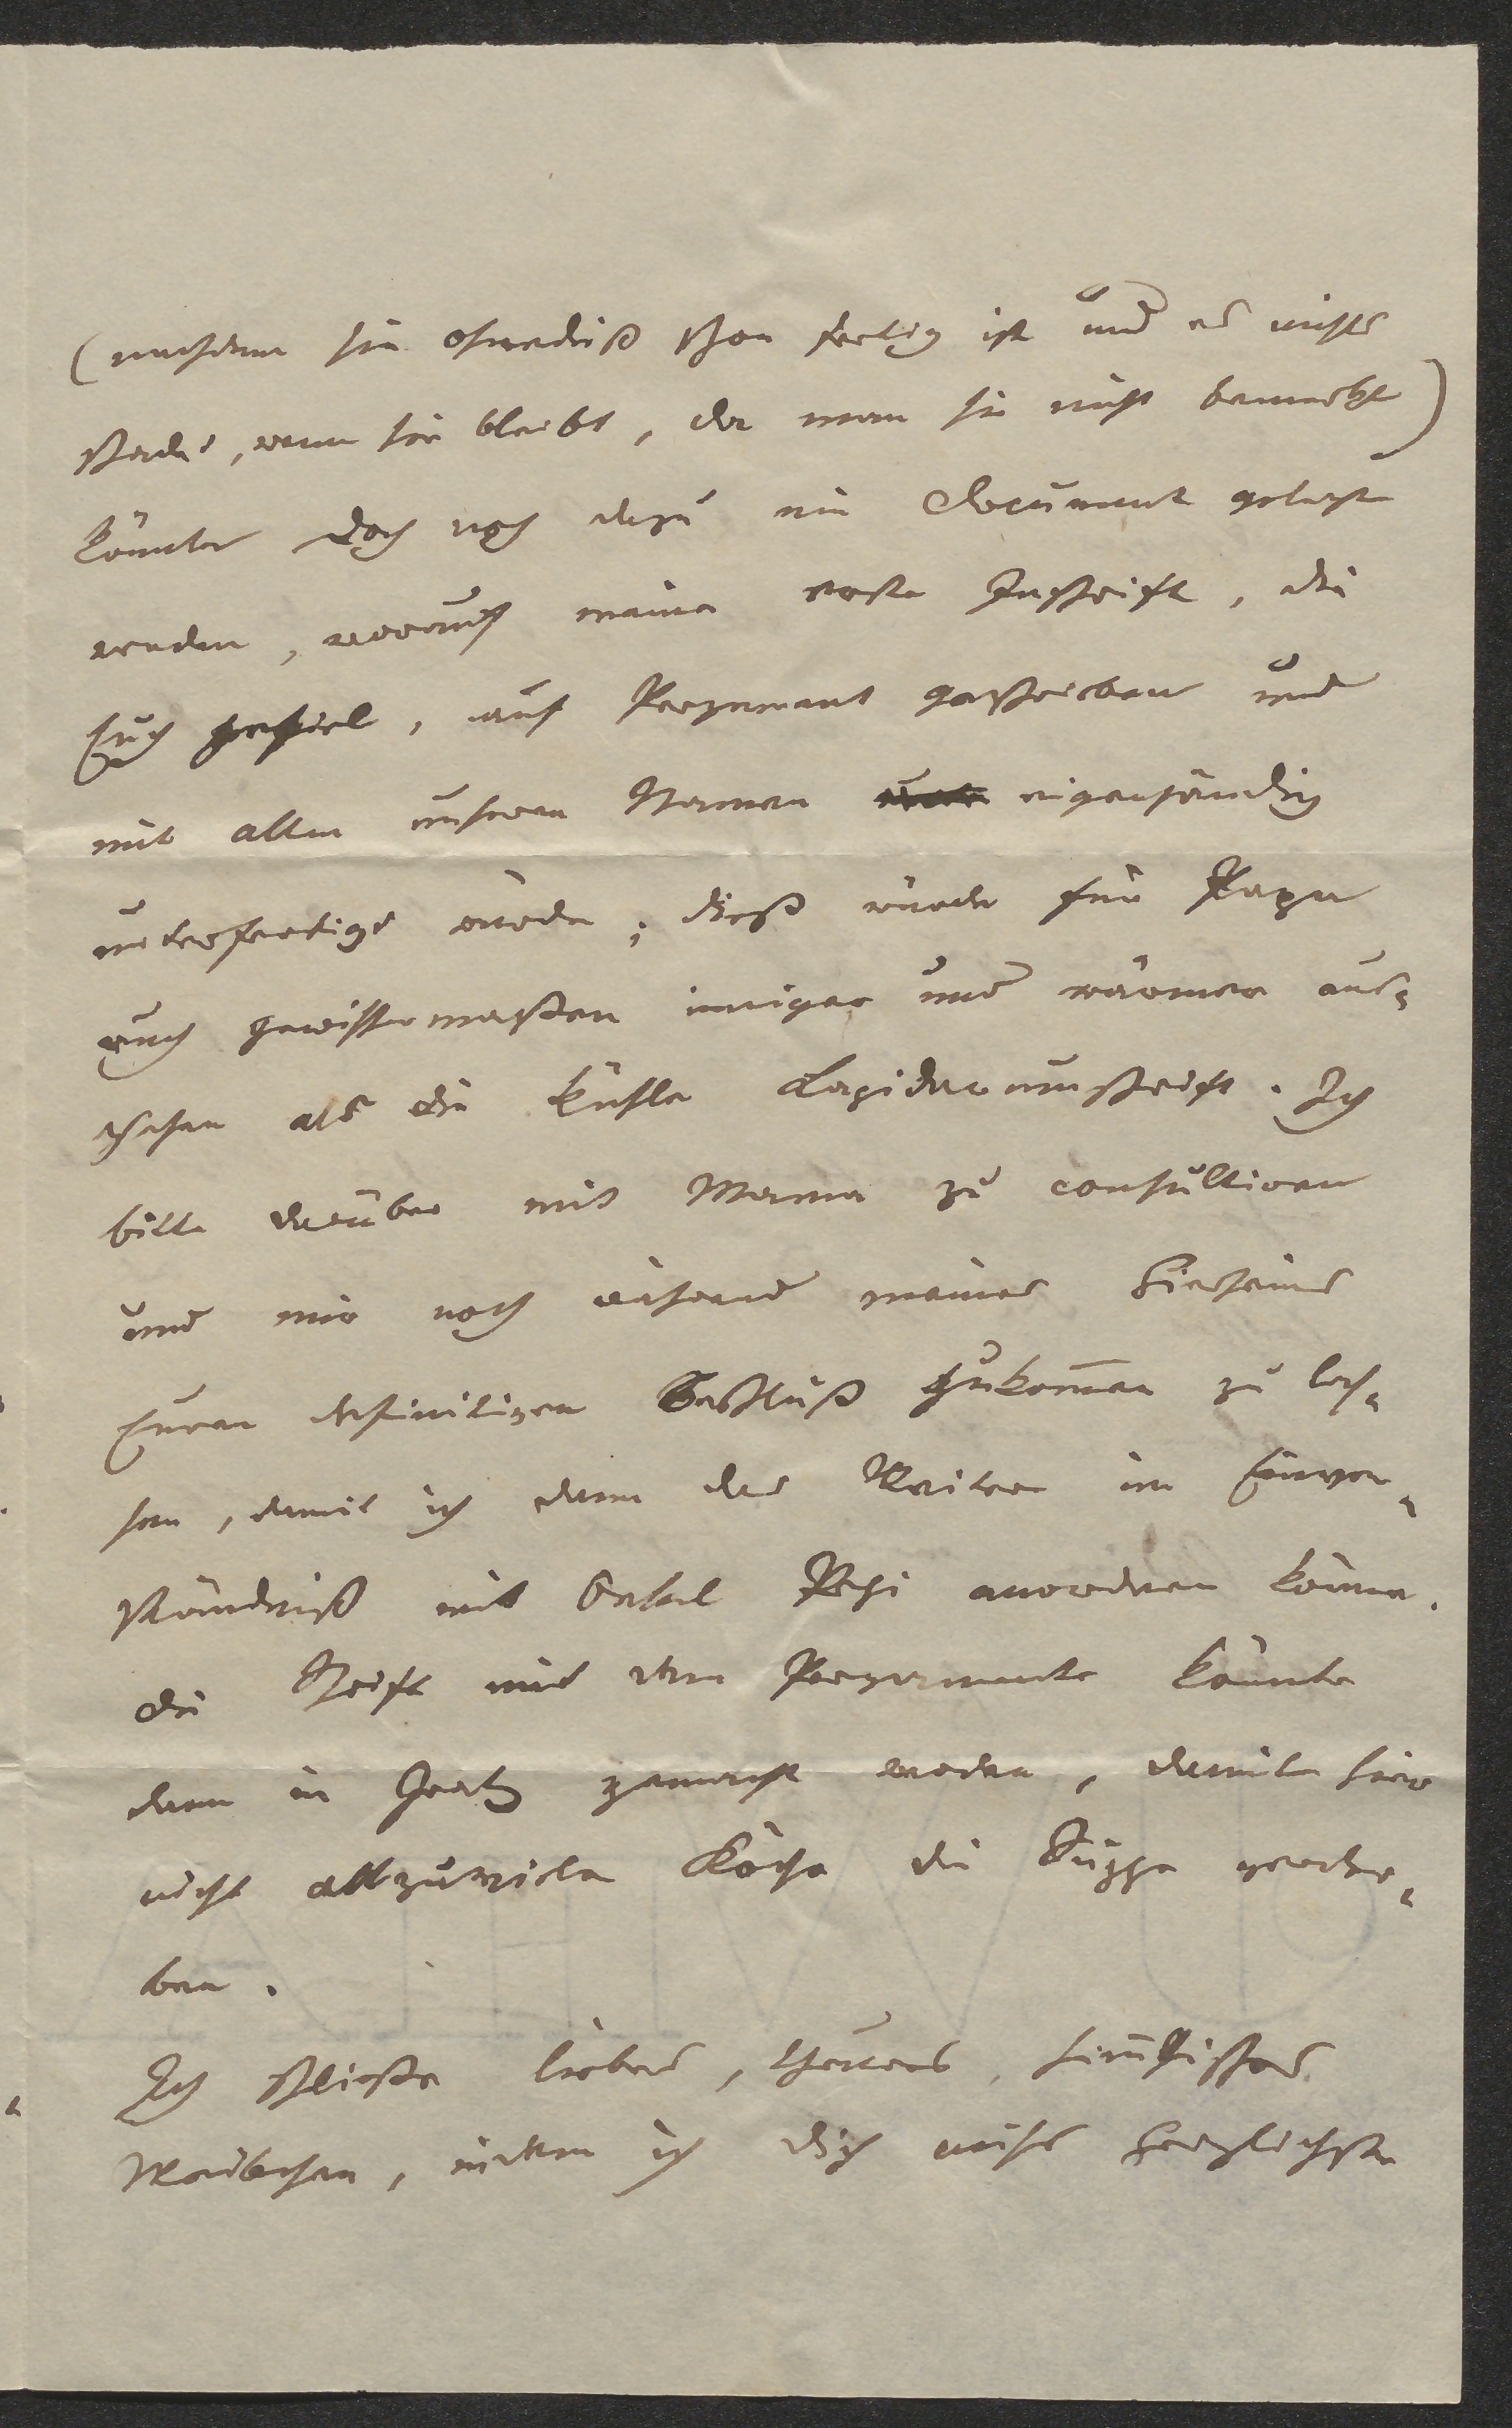 (nachdem sie ohnedieß schon fertig ist und es nichts
schadet, wenn sie bleibt, da man sie nicht bemerkt)
könnte doch noch dazu ein Document gelegt
werden, worauf meine erste Inschrift, die
Euch gefiel, auf Pergament geschrieben und
mit allen unseren Namen eigenhändig
unterfertigt würde; dieß würde für Papa
auch gewissermaßen inniger und wärmer aus-
sehen als die kühle Lapidarumschrift. Ich
bitte darüber mit Mama zu consultiren
und mir noch während meines Hierseins
Euren definitiven Beschluß zukommen zu las-
sen, damit ich dann das Weitere im Einver-
ständniß mit Onkel Pepi anordnen könne.
Die Schrift mit dem Pergamente könnte
dann in Gratz gemacht werden, damit hier
nicht allzuviele Köche die Suppe verder-
ben.
Ich schließe liebes, theures,
Weibchen, indem ich Dich auf's herzlichste